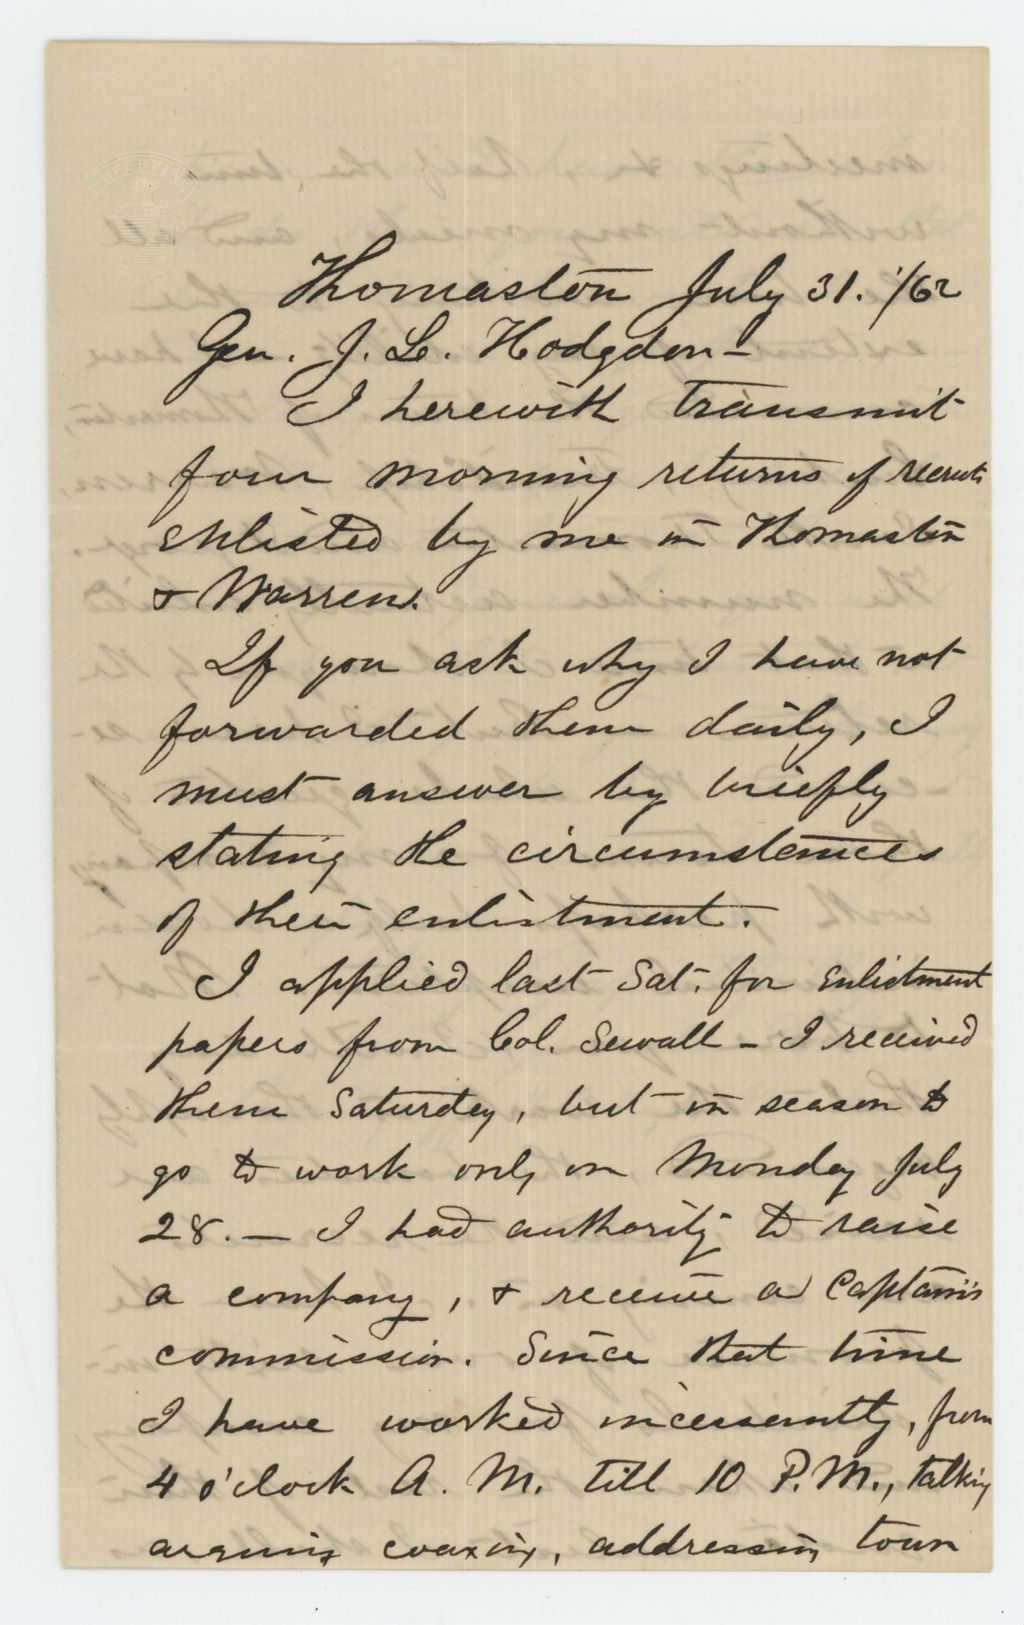 Thomaston July 31. '/62
Gen. J. L. Hodgdon -
I herewith transmit
four morning returns of recruits
enlisted by me in Thomaston
& Warren.
If you ask why I have not
forwarded them daily, I
must answer by briefly
stating the circumstances
of their enlistment.
I applied last Sat. for enlistment
papers from Col. Sewall - I received
them Saturday, but in season to
go to work only on Monday July
28. — I had authority to raise
a company, & receive a Captain's
commission. Since that time
I have worked incessantly, from
4 o'clock A. M. till 10 P.M., talking
arguing coaxing, addressing town